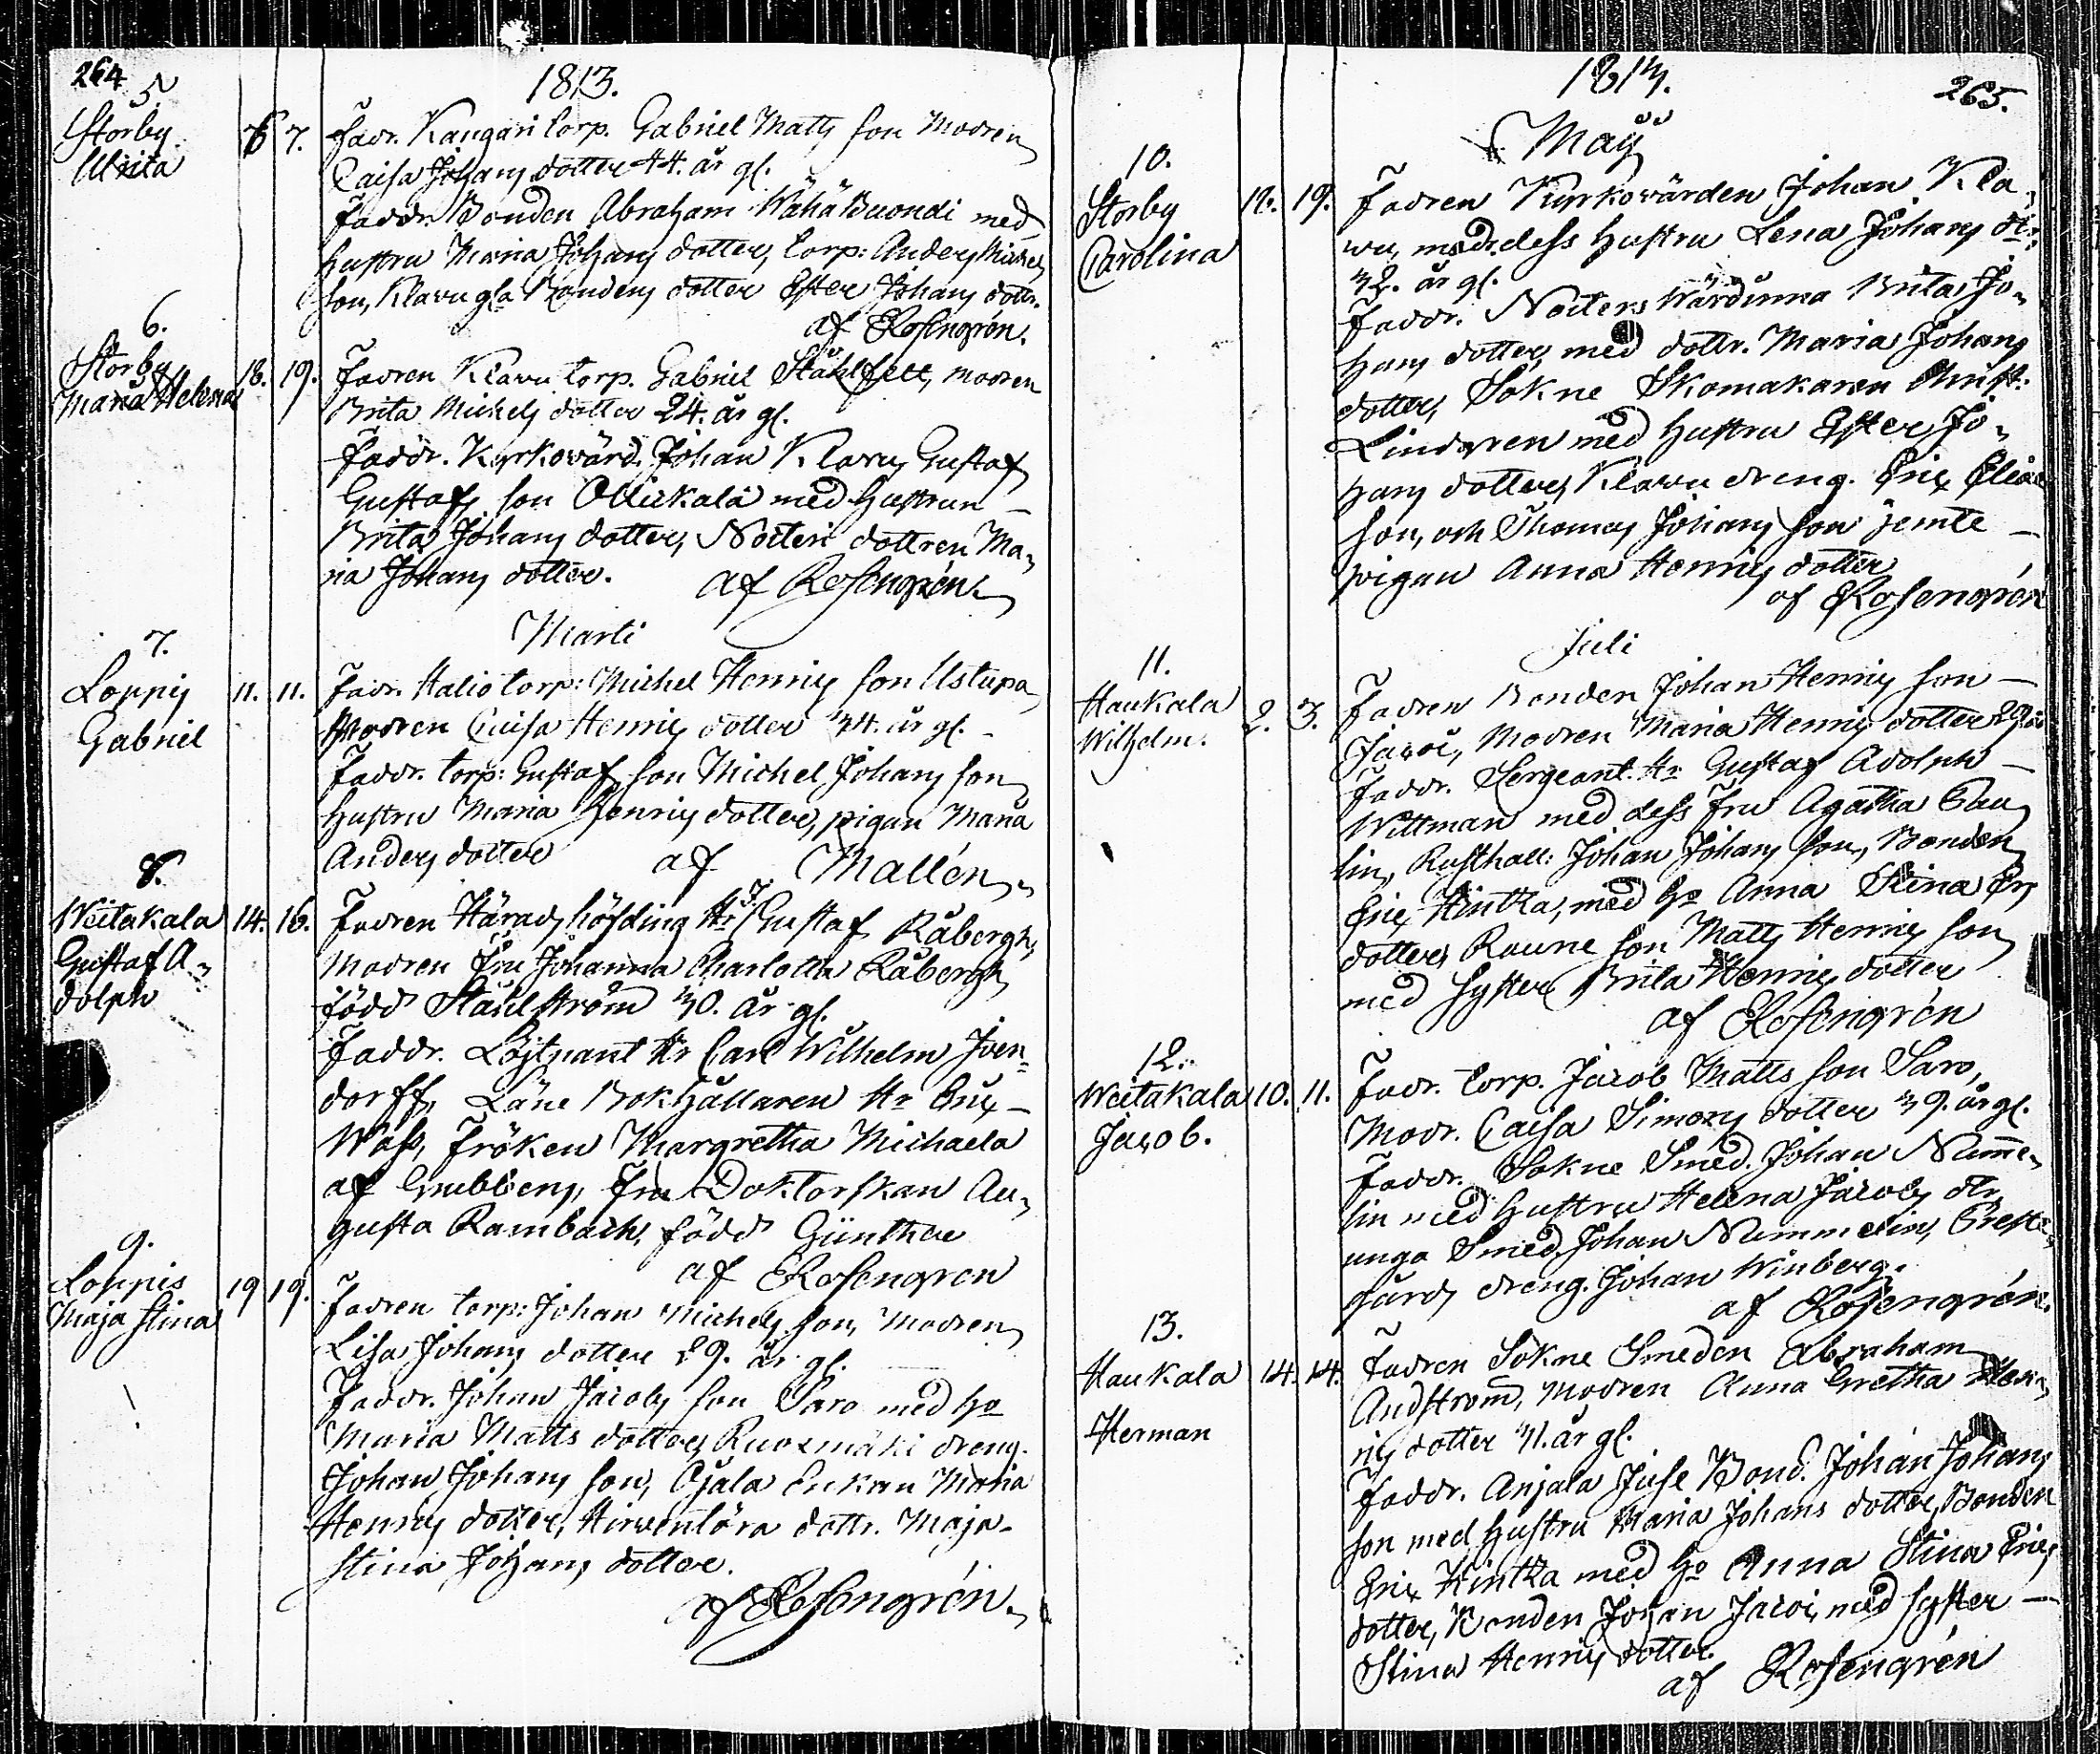 264
1813.
5.
Storby
Ulrica
6 7. Fadr. Kangari torp. Gabriel Matts son Modren
Caisa Johans dotter 44. år gl.
Faddr. Bonden Abraham Wähä Buondi med
hustru Maria Johans dotter, torp: Anders Michels
son, Klavu gla Bondens dotter Ester Johans dottr.
af Rosengrén.
6.
Storby
Maria Helena
18. 19. Fadren Klavu torp. Gabriel Ståhlfelt, modren
Brita Michels dotter 24. år gl.
Faddr. Kyrkovärd. Johan Klavu, Gustaf
Gustafs son Ollickala med hustrun
Brita Johans dotter, Noiteri dottren Ma-
ria Johans dotter. af Rosengrén
Marti
7.
Loppis
Gabriel
11. 11. Fadr. Halio torp: Michel Henrics son Ustupa
Modren Caisa Henrics dotter 34. år gl.
Faddr. torp: Gustafs son Michel Johans son
hustru Maria Henrics dotter, pigan Maria
Anders dotter af Mallén
8.
Weitakala
Gustaf A-
dolph
14. 16. Fadren Härads höfding Hr Gustaf Råbergh,
Modren Fru Johanna Charlotta Råbergh
född Ståhlström 30. år gl.
Faddr. Löjtnant Hr Carl Wilhelm Iven-
dorff, Läne Bokhållaren Hr Eric
Wass, Fröken Margretha Michaela
af Grubbens, Fru Doktorskan Au-
gusta Rambach, född Günther
af Rosengren
9.
Loppis
Maja Stina
19 19. Fadren torp: Johan Michels son, Modren
Lisa Johans dotter 29. år gl.
Faddr. Johan Jacobs son Saro med ho
Maria Matts dotter, Ruonmäki dreng.
Johan Johans son, Ojala Enkan Maria
Henrics dotter, Hirvenlöra dottr. Maja
Stina Johans dotter.
af Rosengrén
1813.
265.
May
10.
Storby
Carolina
12. 19. Fadren Kyrkovärden Johan Kla-
vu, modr. dess hustru Lena Johans dr.
32. år gl.
Faddr. Noiters Värdinna Brita Jo-
hans dotter, med dottr. Maria Johans
dotter, Sokne Skomakaren Christ:
Lindgren med hustru Ester Jo-
hans dotter, Klavu dreng. Eric Elias
son, och Thomas Johans son jemte
pigan Anna Henrics dotter
af Rosengrén
Juli
11.
Haukala
Wilhelm.
2. 3. Fadren Bonden Johan Henrics son
Jacoi, Modren Maria Henrics dotter 29 år
Faddr. Sergeant. Hr Gustaf Adolph
Wittman med dess Fru Agatha Pau-
lin, Rusthall: Johan Johans son, Bonden
Eric Hintka, med ho Anna Stina Ers
dotter, Raune son Matts Henrics son
med syster Brita Henrics dotter
af Rosengrén
12.
Weitakala
Jacob.
10. 11. Fadr. torp. Jacob Matts son Saro,
Modr. Caisa Simons dotter 39. år gl.
Faddr. Sokne Smed. Johan Numme-
lin med hustru Helena Jacobs dtr,
unga Smed. Johan Nummelin, Prest-
gårds dreng. Johan Winberg.
af Rosengrén.
13.
Haukala
Herman
14. 14. Fadren Sokne Smeden Abraham
Andström, modren Anna Gretha Hen-
rics dotter 31. år gl.
Faddr. Anjala Juse Bond. Johan Johans
son med hustru Maria Johans dotter, Bonden
Eric Hintka med ho Anna Stina Erics
dotter, Bonden Johan Jacoi, med syster
Stina Henrics dotter.
af Rosengrén